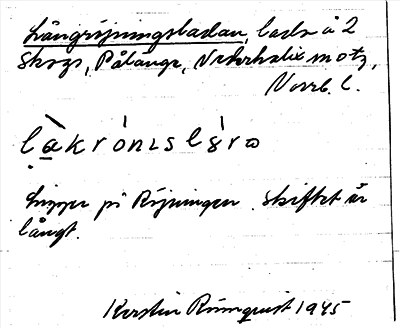 Långröjningsladan, lada å 2
Skogs, Pålänge, Nederkalix m o tg,
Norrb. l.
låkrònıslàro
Ligger på Röjningen. Skiftet är
långt.
Kerstin Rönnquist 1945